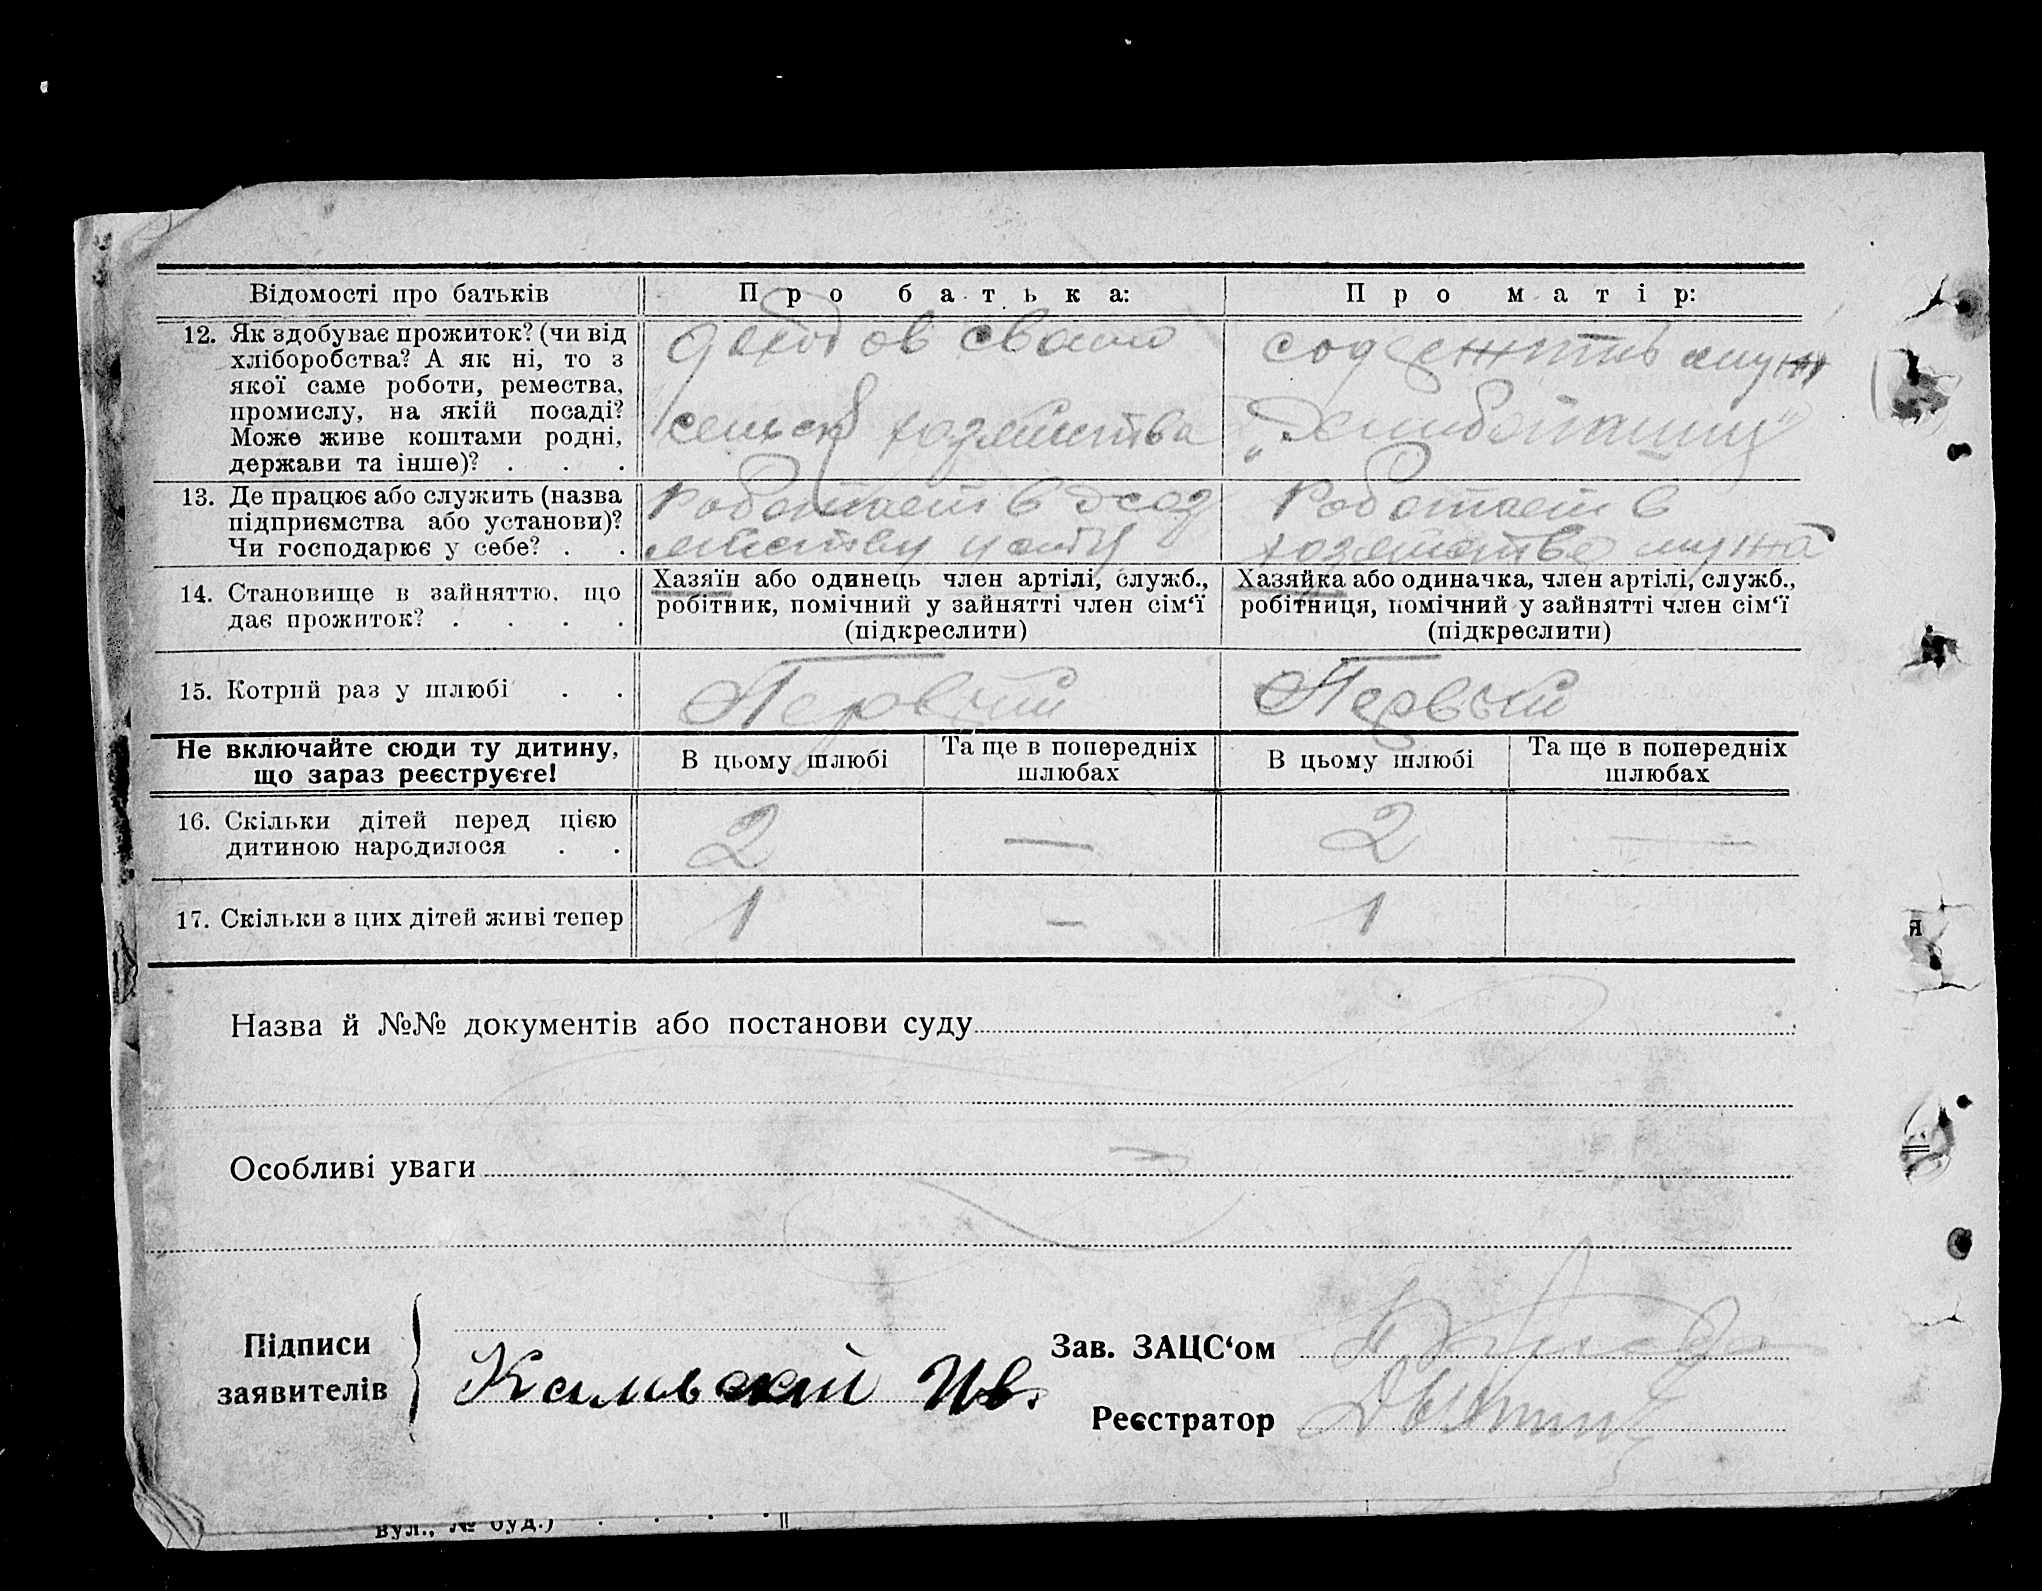 Відомості про батьків
Про батька:
Про матір:
12. Як здобуває прожиток? (чи від
хліборобства? А як ні, то з
якої саме роботи, ремества,
промислу, на якій посаді?
Може живе коштами родні,
держави та інше)? . . .
доходов своего
сельск хозяйства
муж
13. Де працює або служить (назва
підприємства або установи)?
Чи господарює у себе? . .
Работает в
Работает в
хозяйстве мужа
14. Становище в зайняттю, що
дає прожиток? . . . .
Хазяїн або одинець член артілі, служб.,
робітник, помічний у зайнятті член сім'ї
(підкреслити)
Хазяйка або одиначка, член артілі, служб.,
робітниця, помічний у зайнятті член сім'ї
(підкреслити)
15. Котрий раз у шлюбі . .
Первый
Первый
Не включайте сюди ту дитину,
що зараз реєструєте!
В цьому шлюбі
Та ще в попередніх
шлюбах
В цьому шлюбі
Та ще в попередніх
шлюбах
16. Скільки дітей перед цією
дитиною народилося . .
2
—
2
—
17. Скільки з цих дітей живі тепер
1
—
1
я
Назва й №№ документів або постанови суду
Особливі уваги
Підписи
заявителів
Зав. ЗАЦС'ом
Реєстратор
вул., № буд.) . . . .